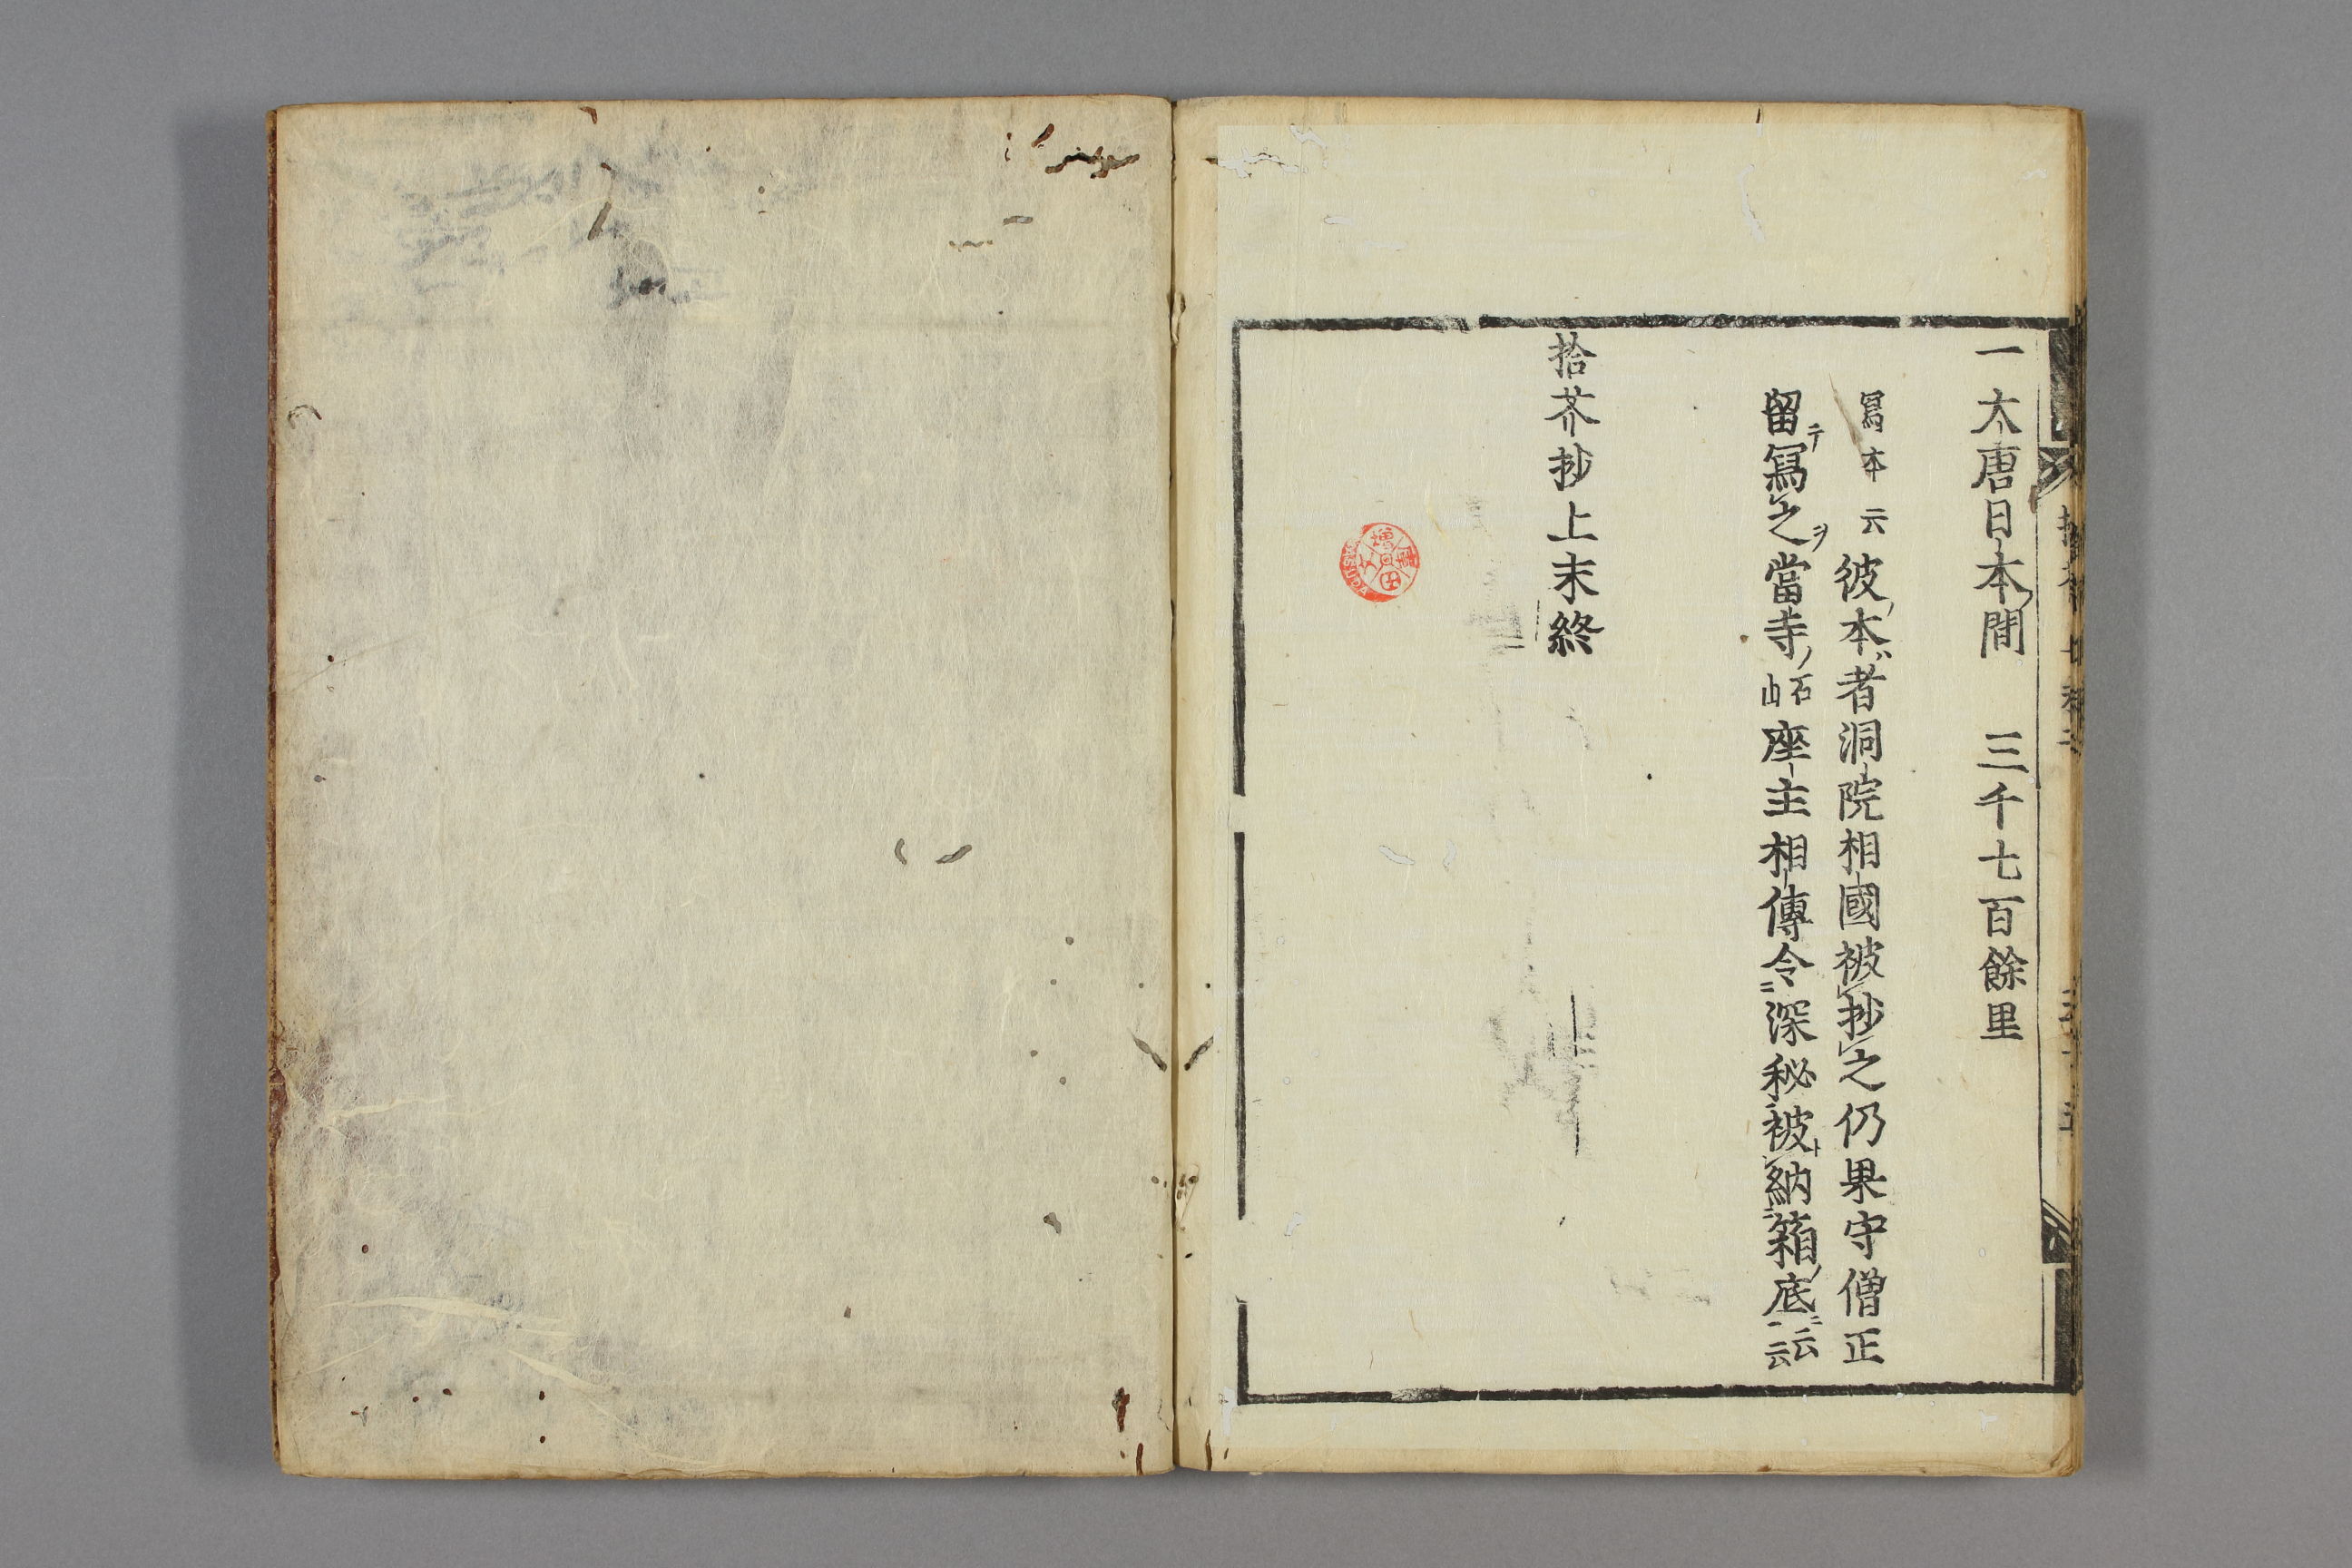 一大唐日本間　三千七百餘里
冩本云　彼本者洞院相國被抄之仍果守僧正
留冩之當寺石山座主相傳令深秘被納箱底云云
拾芥抄上末終